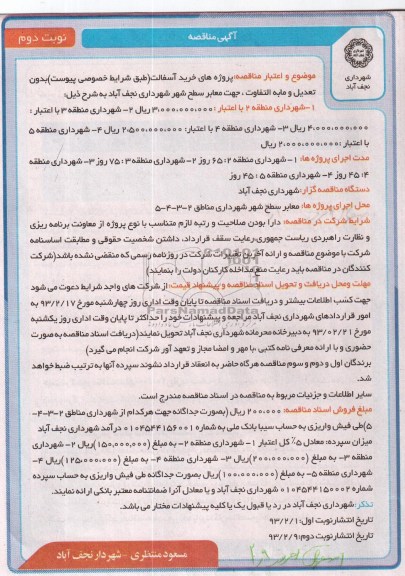 آگهی مناقصه
نوبت دوم
شهرداری
نجف آباد
موضوع و اعتبار مناقصه: پروژه های خرید آسفالت(طبق شرایط خصوصی پیوست)بدون
تعدیل و مابه التفاوت ، جهت معابر سطح شهر شهرداری نجف آباد به شرح ذیل:
۱-شهرداری منطقه ۲ با اعتبار : ۳،۰۰۰،۰۰۰،۰۰۰ ریال ۲- شهرداری منطقه ۳ با اعتبار :
۴،۰۰۰،۰۰۰،۰۰۰ ریال ۳- شهرداری منطقه ۴ با اعتبار: ۲،۵۰۰،۰۰۰،۰۰۰ ریال ۴- شهرداری منطقه ۵
با اعتبار: ۲،۰۰۰،۰۰۰،۰۰۰ ریال
مدت اجرای پروژه ها: ۱- شهرداری منطقه ۲: ۶۵ روز ۲-شهرداری منطقه ۳ : ۷۵ روز ۳- شهرداری منطقه
۴: ۴۵ روز ۴- شهرداری منطقه ۵ : ۴۵ روز
دستگاه مناقصه گزار: شهرداری نجف آباد
محل اجرای پروژه ها: معابر سطح شهر شهرداری مناطق ۲-۳-۴-۵
شرایط شرکت در مناقصه: دارا بودن صلاحیت و رتبه لازم متناسب با نوع پروژه از معاونت برنامه ریزی
و نظارت راهبردی ریاست جمهوری رعایت سقف قرارداد، داشتن شخصیت حقوقی و مطابقت اساسنامه
شرکت با موضوع مناقصه و ارائه آخرین تغییرات شرکت در روزنامه رسمی که منقضی نشده باشد(شرکت
کنندگان در مناقصه باید رعایت منع مداخله کارکنان دولت را بنمایند)
مهلت ومحل دریافت و تحویل اسناد مناقصه و پیشنهاد قیمت: از شرکت های واجد شرایط دعوت می شود
جهت کسب اطلاعات بیشتر و دریافت اسناد مناقصه تا پایان وقت اداری روز چهارشنبه مورخ ۹۳/۰۲/۱۷ به
امور قراردادهای شهرداری نجف آباد مراجعه و پیشنهادات خود را حداکثر تا پایان وقت اداری روز یکشنبه
مورخ ۹۳/۰۲/۲۱ به دبیرخانه محرمانه شهرداری نجف آباد تحویل نمایند(دریافت اسناد مناقصه به صورت
حضوری و با ارائه معرفی نامه کتبی ،با مهر و امضا مجاز و تعهد آور شرکت انجام می گیرد)
برندگان اول و دوم و سوم مناقصه هرگاه حاضر به انعقاد قرارداد نشوند سپرده آنها به ترتیب ضبط خواهد
شد.
سایر اطلاعات و جزئیات مربوط به مناقصه در اسناد مناقصه مندرج است.
مبلغ فروش اسناد مناقصه: ۲۰۰،۰۰۰ ریال (بصورت جداگانه جهت هرکدام از شهرداری مناطق ۲-۳-۴-
۵)طی فیش واریزی به حساب سیبا بانک ملی به شماره ۰۱۰۴۵۴۴۱۵۶۰۰۱ درآمد شهرداری نجف آباد
میزان سپرده: معادل ۵٪ کل اعتبار ۱- شهرداری منطقه ۲- به مبلغ (۱۵۰،۰۰۰،۰۰۰)ریال ۲- شهرداری
منطقه ۳- به مبلغ (۲۰۰،۰۰۰،۰۰۰)ریال ۳- شهرداری منطقه ۴- به مبلغ (۱۲۵،۰۰۰،۰۰۰)ریال ۴-
شهرداری منطقه ۵- به مبلغ (۱۰۰،۰۰۰،۰۰۰) ریال بصورت جداگانه طی فیش واریزی به حساب سپرده
شماره ۰۱۰۴۵۴۴۱۵۰۰۰۲ شهرداری نجف آباد و یا معادل آنرا ضمانتنامه معتبر بانکی ارائه نمایند.
تذکر: شهرداری نجف آباد در رد یا قبول یک یا کلیه پیشنهادات مختار می باشد.
تاریخ انتشارنوبت اول: ۹۳/۲/۱
تاریخ انتشارنوبت دوم: ۹۳/۲/۹
مسعود منتظری - شهردار نجف آباد
ParsNamadData